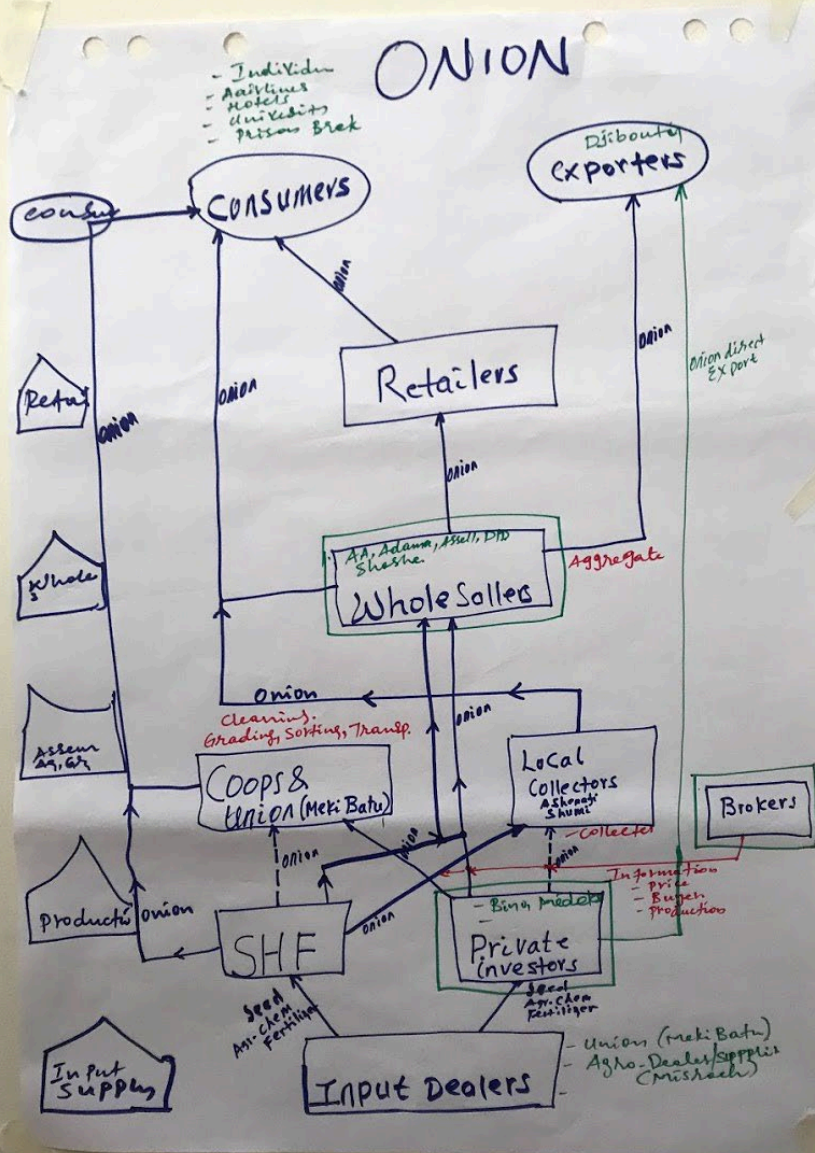 ONION
- Individu
- Aairlines
- Hotels
- Univesity
- Prison Brek
Djibouti
exporters
Consumers
consu
onion
onion direct
Export
onion
Retailers
Retai
onion
onion
onion
AA, Adama, Assell, DD
Shashe.
Whole Sollers
Aggregate
Whole
s
Onion
onion
Cleaning.
Grading, Sorting, Transp.
Assem
Ag, Gr,
Coops &
Union (Meki Batu)
Local
Collectors
Shumi
- Collecter
Brokers
onion
onion
onion
Information
- Price
- Buyer
- Production
Producti
onion
SHF
onion
Private
investors
Seed
Agr-Chem
Fertilizer
Seed
Agr-Chem
Fertilizer
Input
Supply
Input Dealers
- Union (Meki Batu)
- Agro-Dealer/Supplie
(Misrach)
-